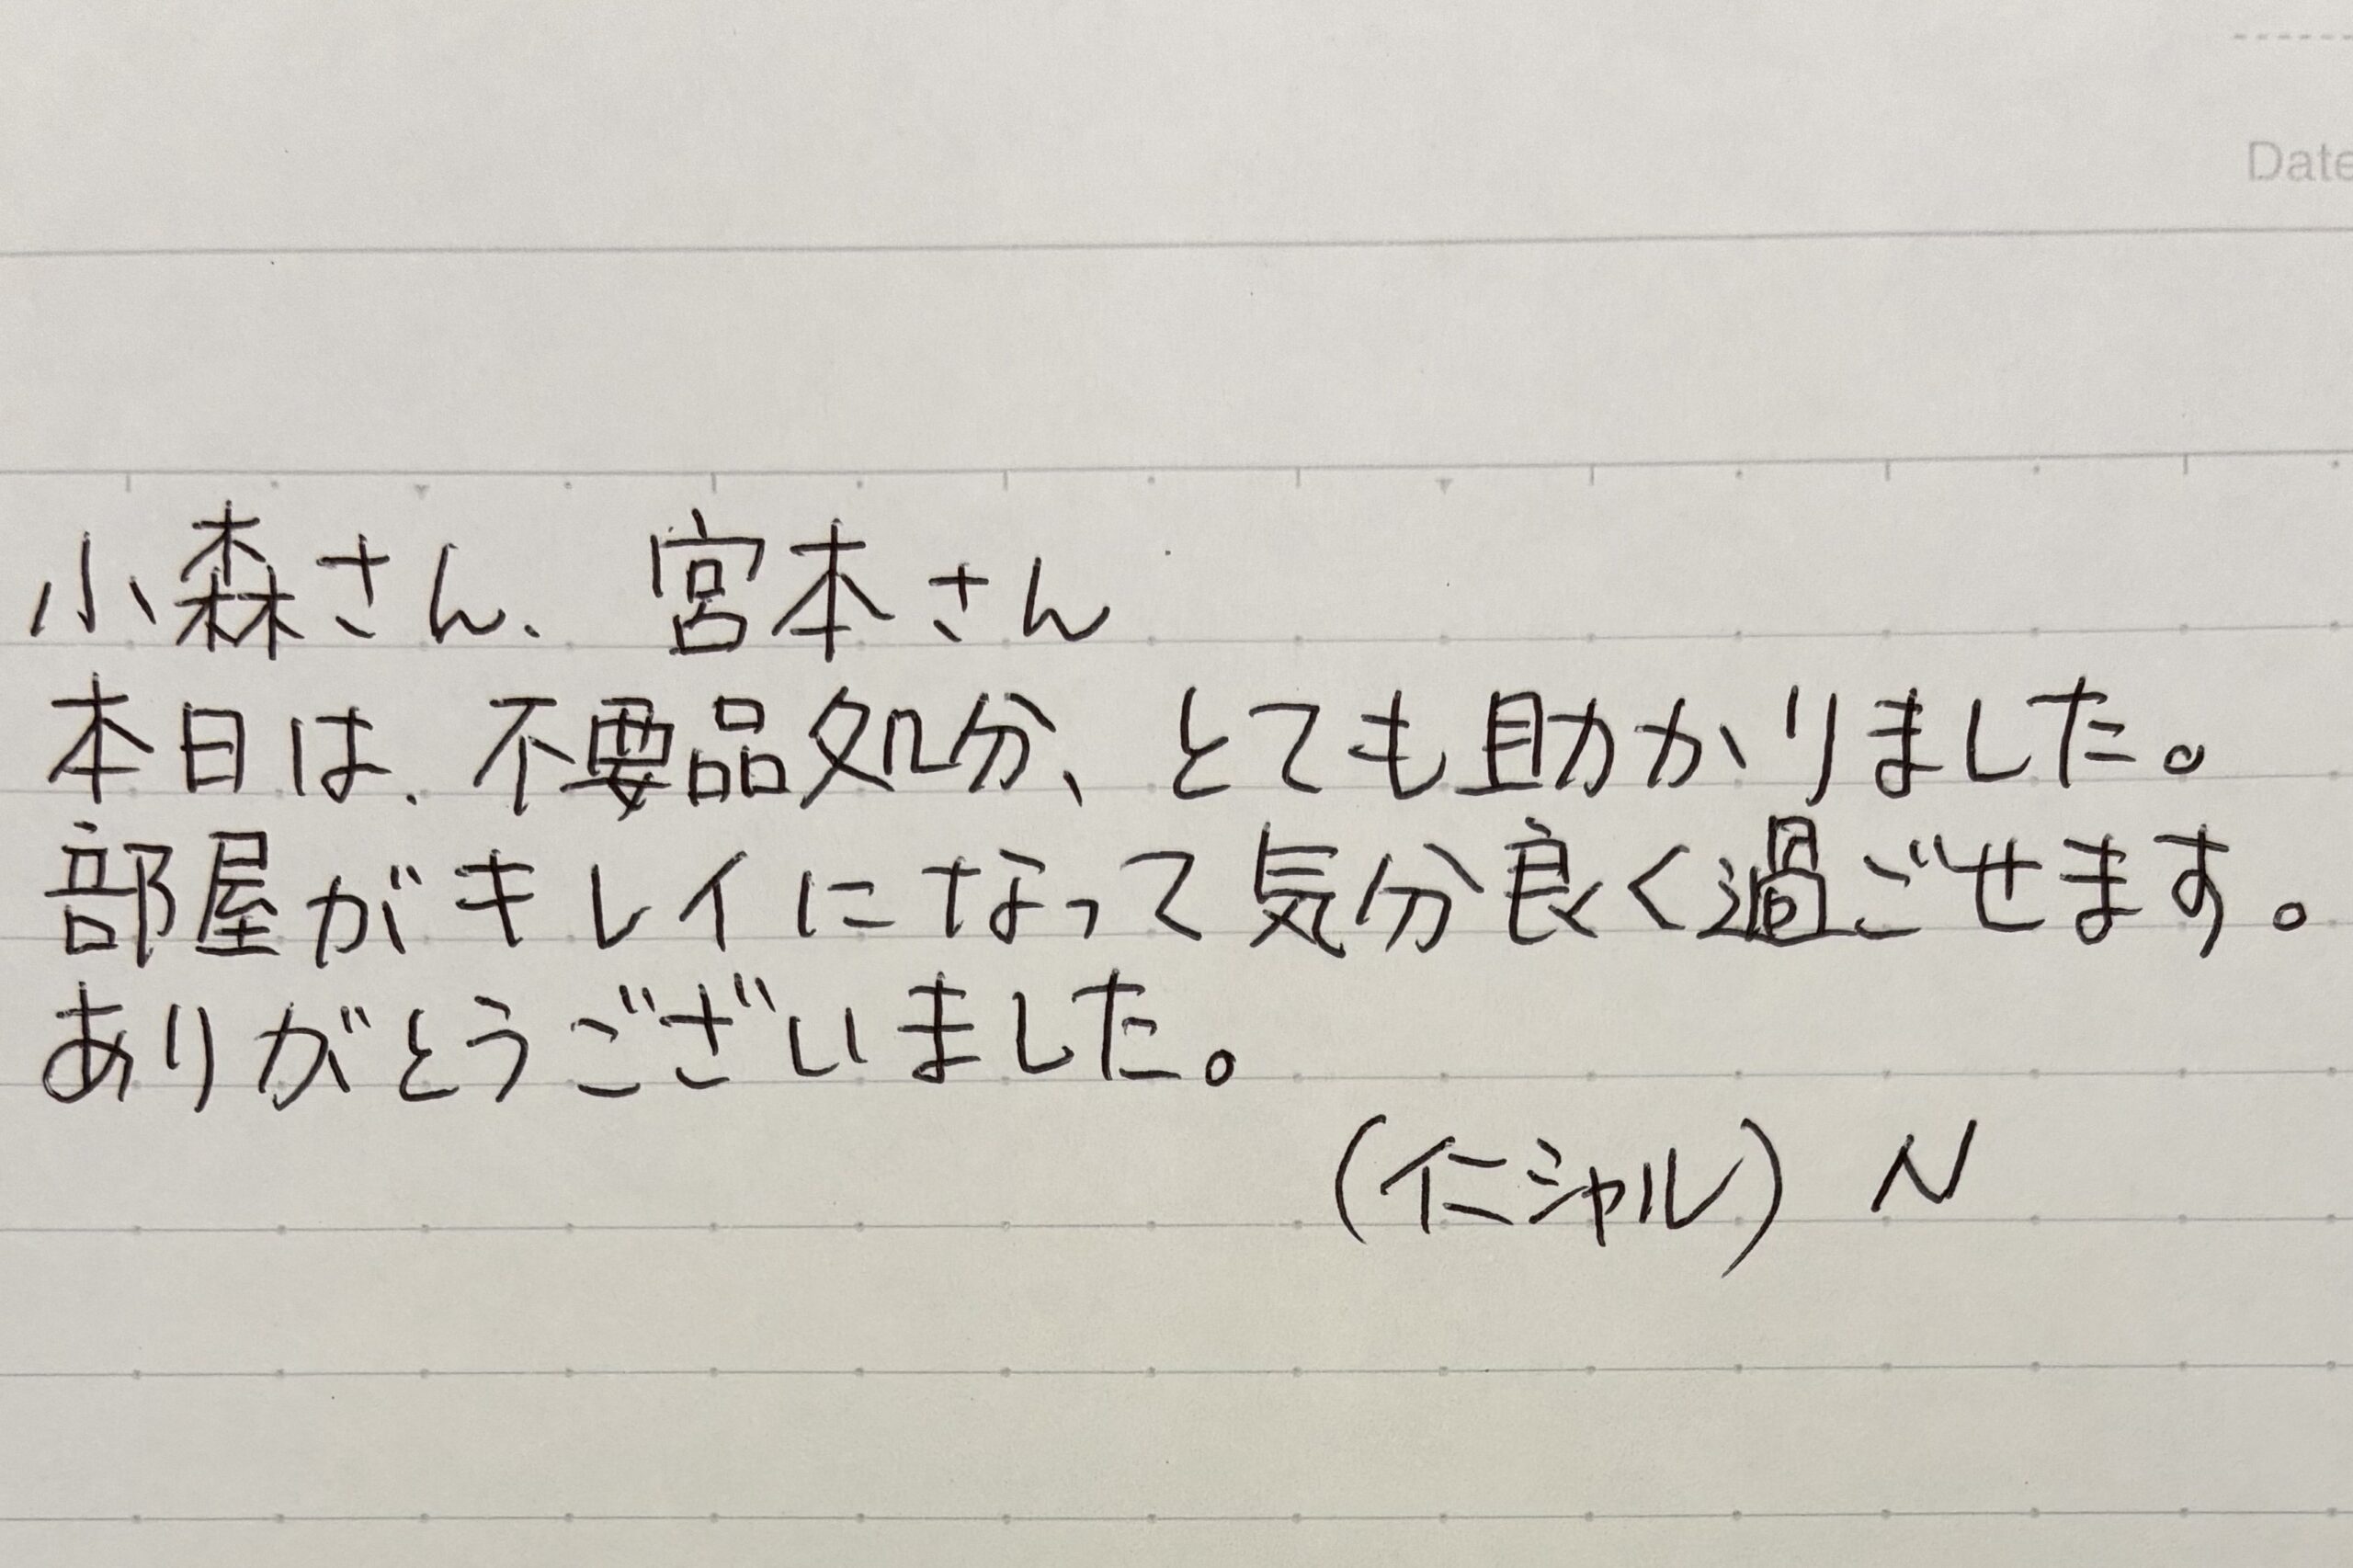 Date
小森さん、宮本さん
本日は、不要品処分、とても助かりました。
部屋がキレイになって気分良く過ごせます。
ありがとうございました。
(イニシャル) N